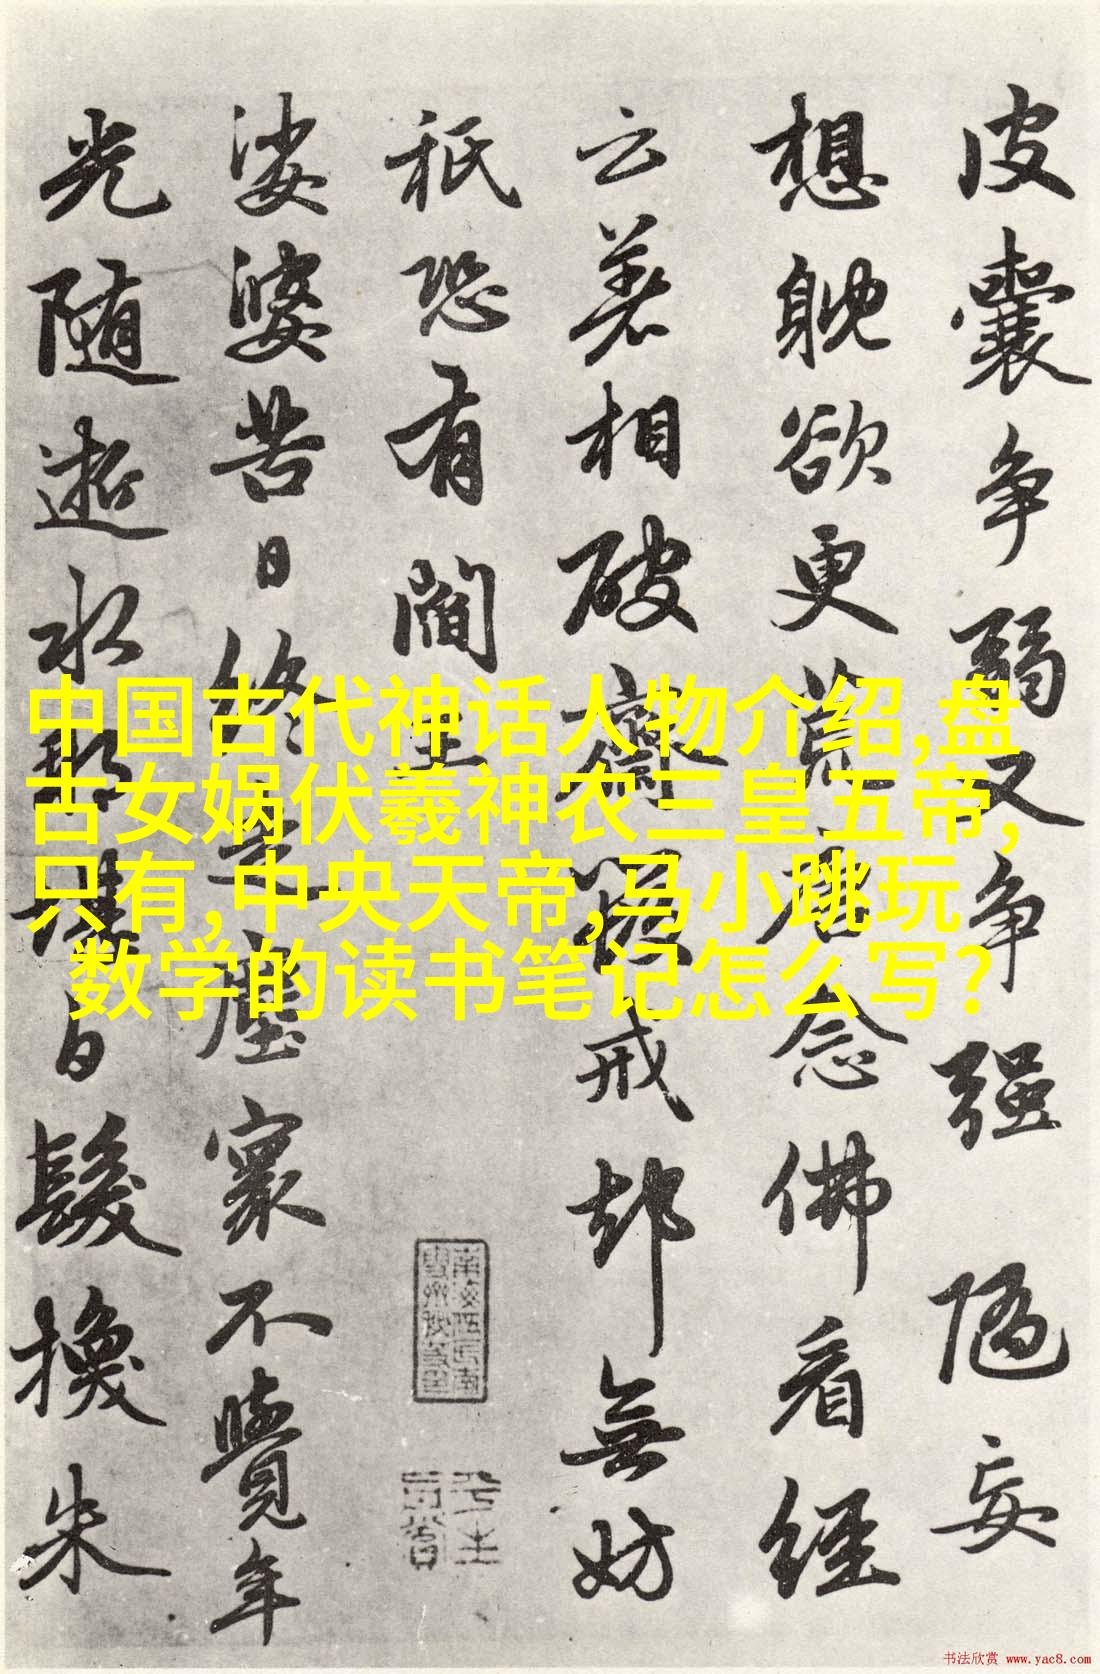 皮囊争弱又争强 随妄
想躭欲更荒唐念佛看经
云若相破斋毁戒却无妨
秖恐有阎王
娑婆苦日终是尘寰不觉年
光随逝水
日髮换朱
中国古代神话人物介绍,盘
古女娲伏羲神农三皇五帝,
只有,中央天帝,马小跳玩
数学的读书笔记怎么写?
书法欣赏 www.yac8.com